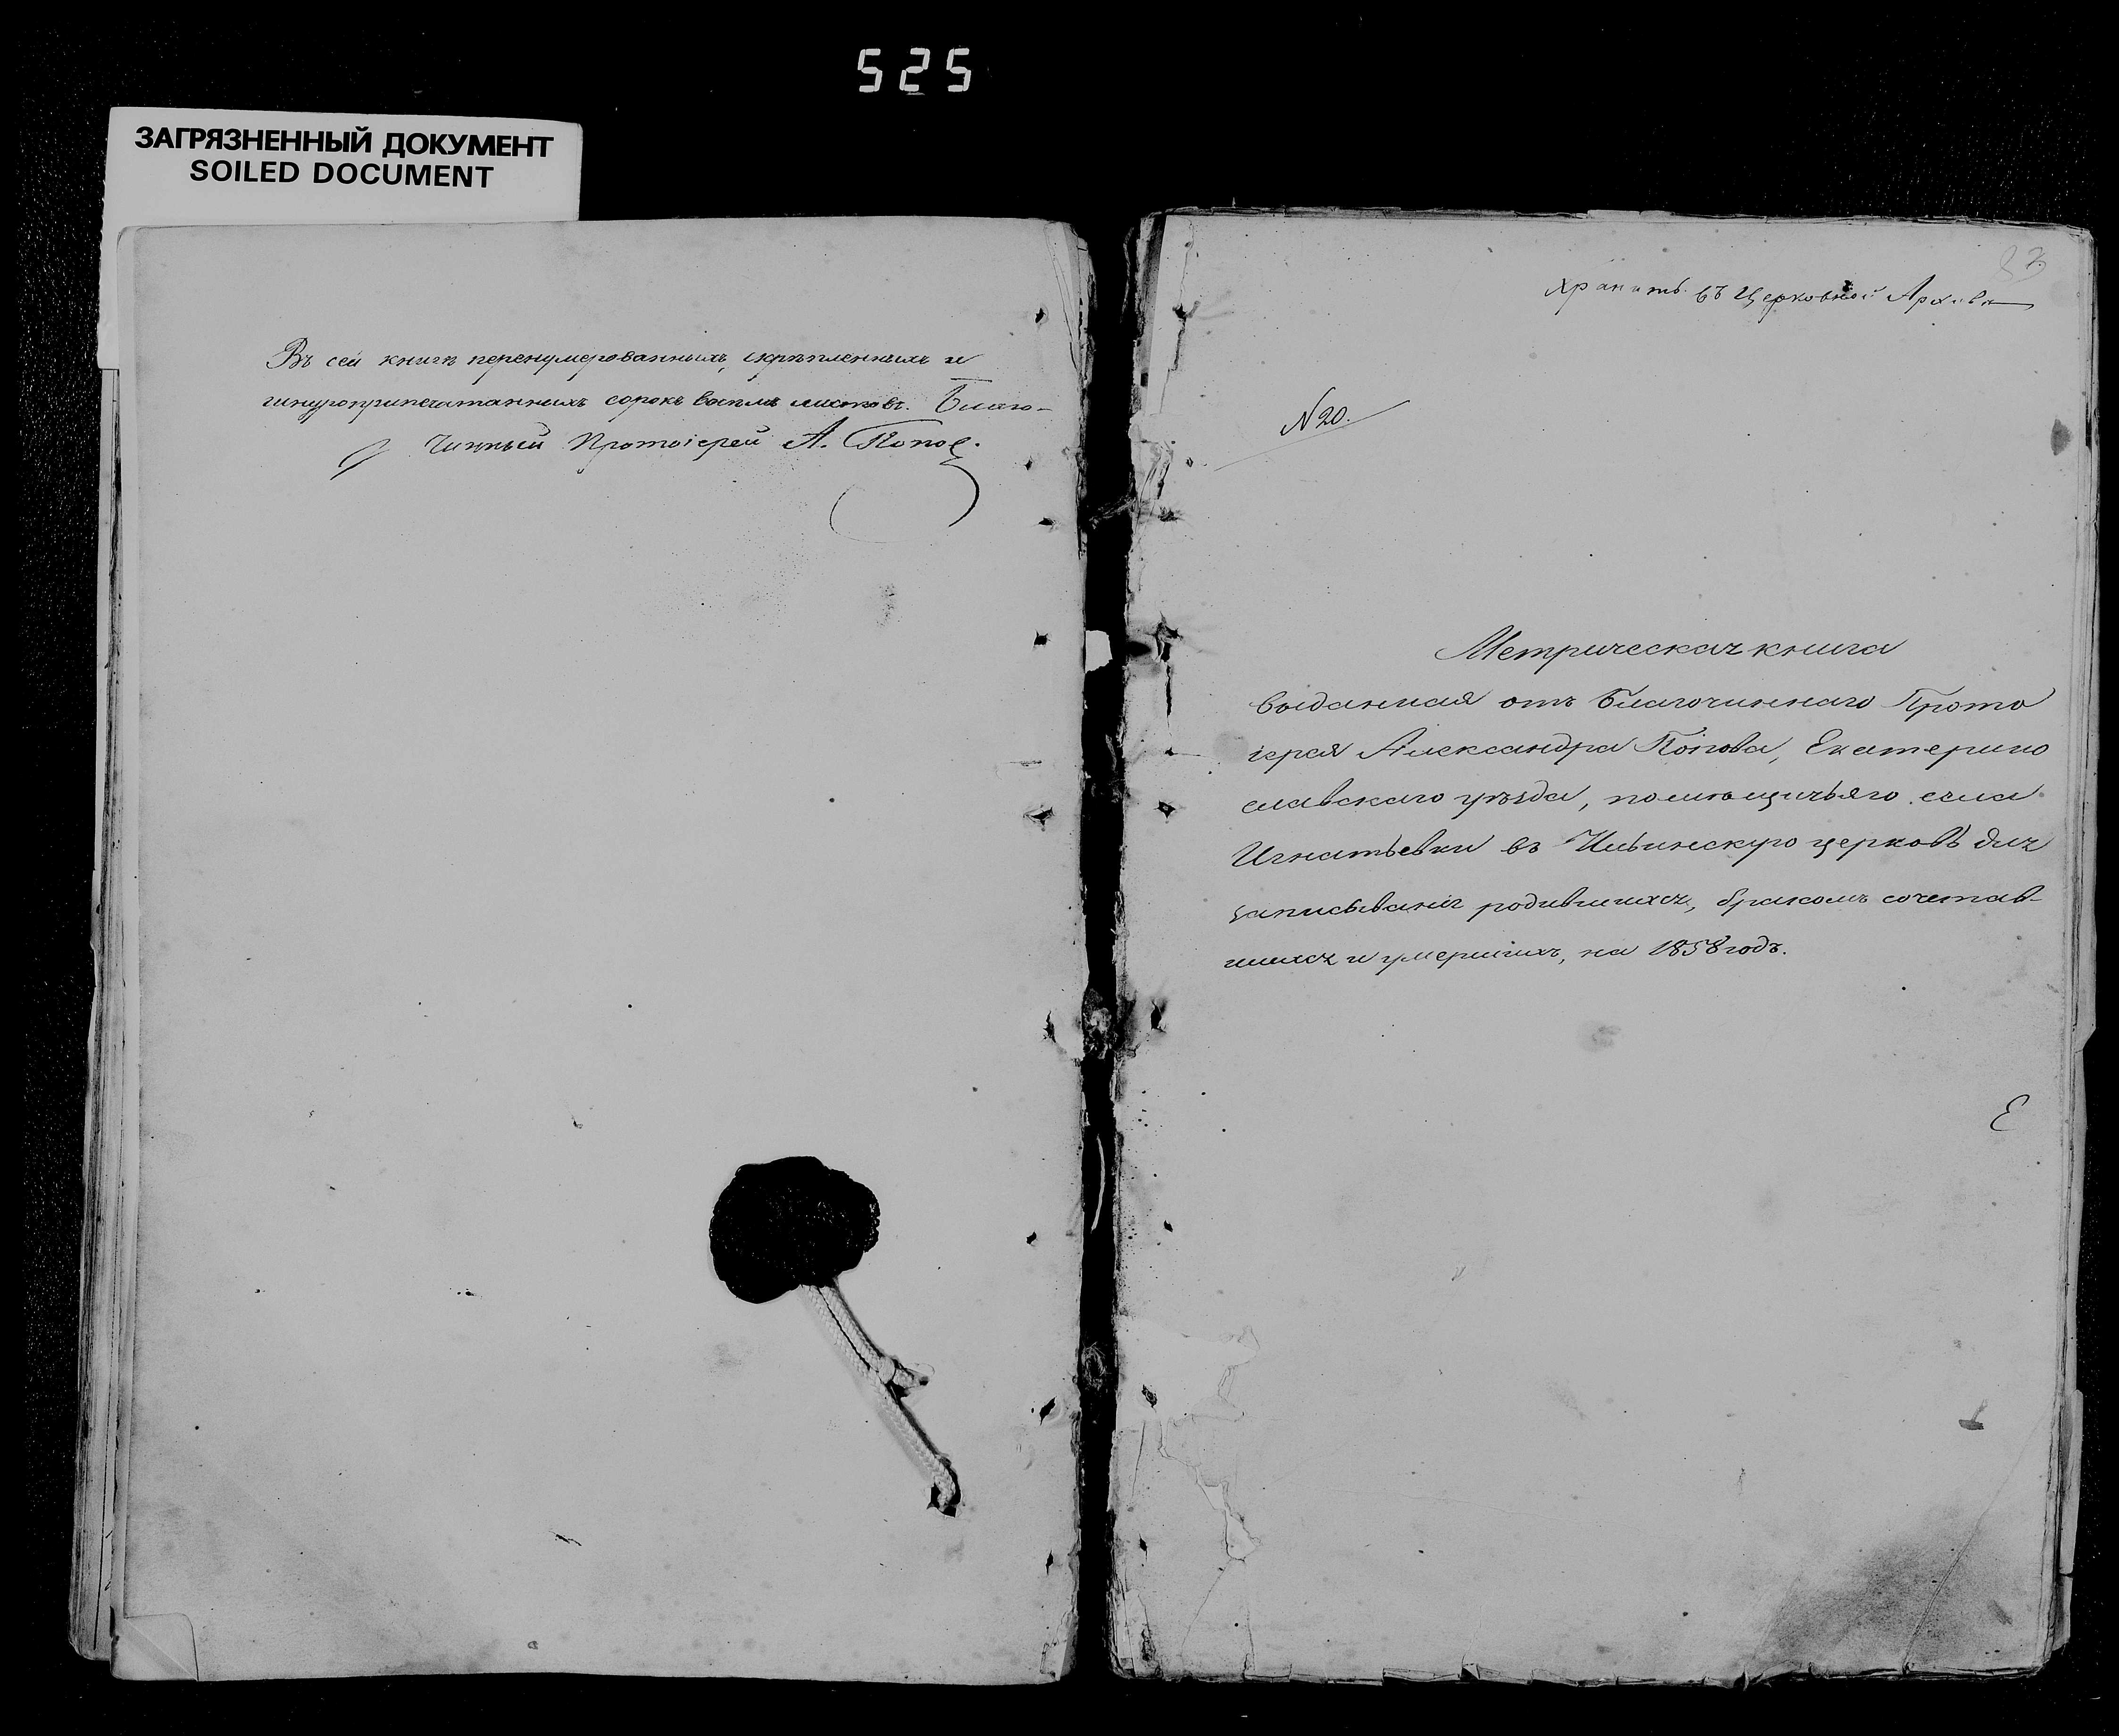 525
ЗАГРЯЗНЕННЫЙ ДОКУМЕНТ
SOILED DOCUMENT
Въ сей книгѣ перенумерованныхъ, скрѣпленныхъ и
шнуроприпечатанныхъ сорокъ восемь листовъ. Благо-
чинный Протоіерей А. Попов.
Хранить въ Церковной Архивѣ
N 20.
Метрическая книга
выданная отъ Благочиннаго Прото
іерея Александра Попова, Екатерино
славскаго уѣзда, помѣщичьяго села
Игнатьевки въ Ильинскую церковь для
записыванія родившихся, бракомъ сочетав-
шихся и умершихъ, на 1858 годъ.
Е